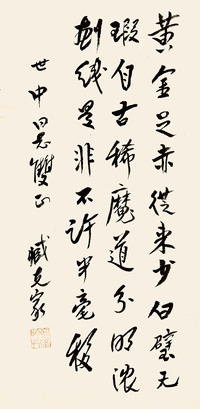 黄金足赤從来少白璧无
瑕自古稀魔道分明浓
划线是非不许半毫移
世中同志雙正
臧克家